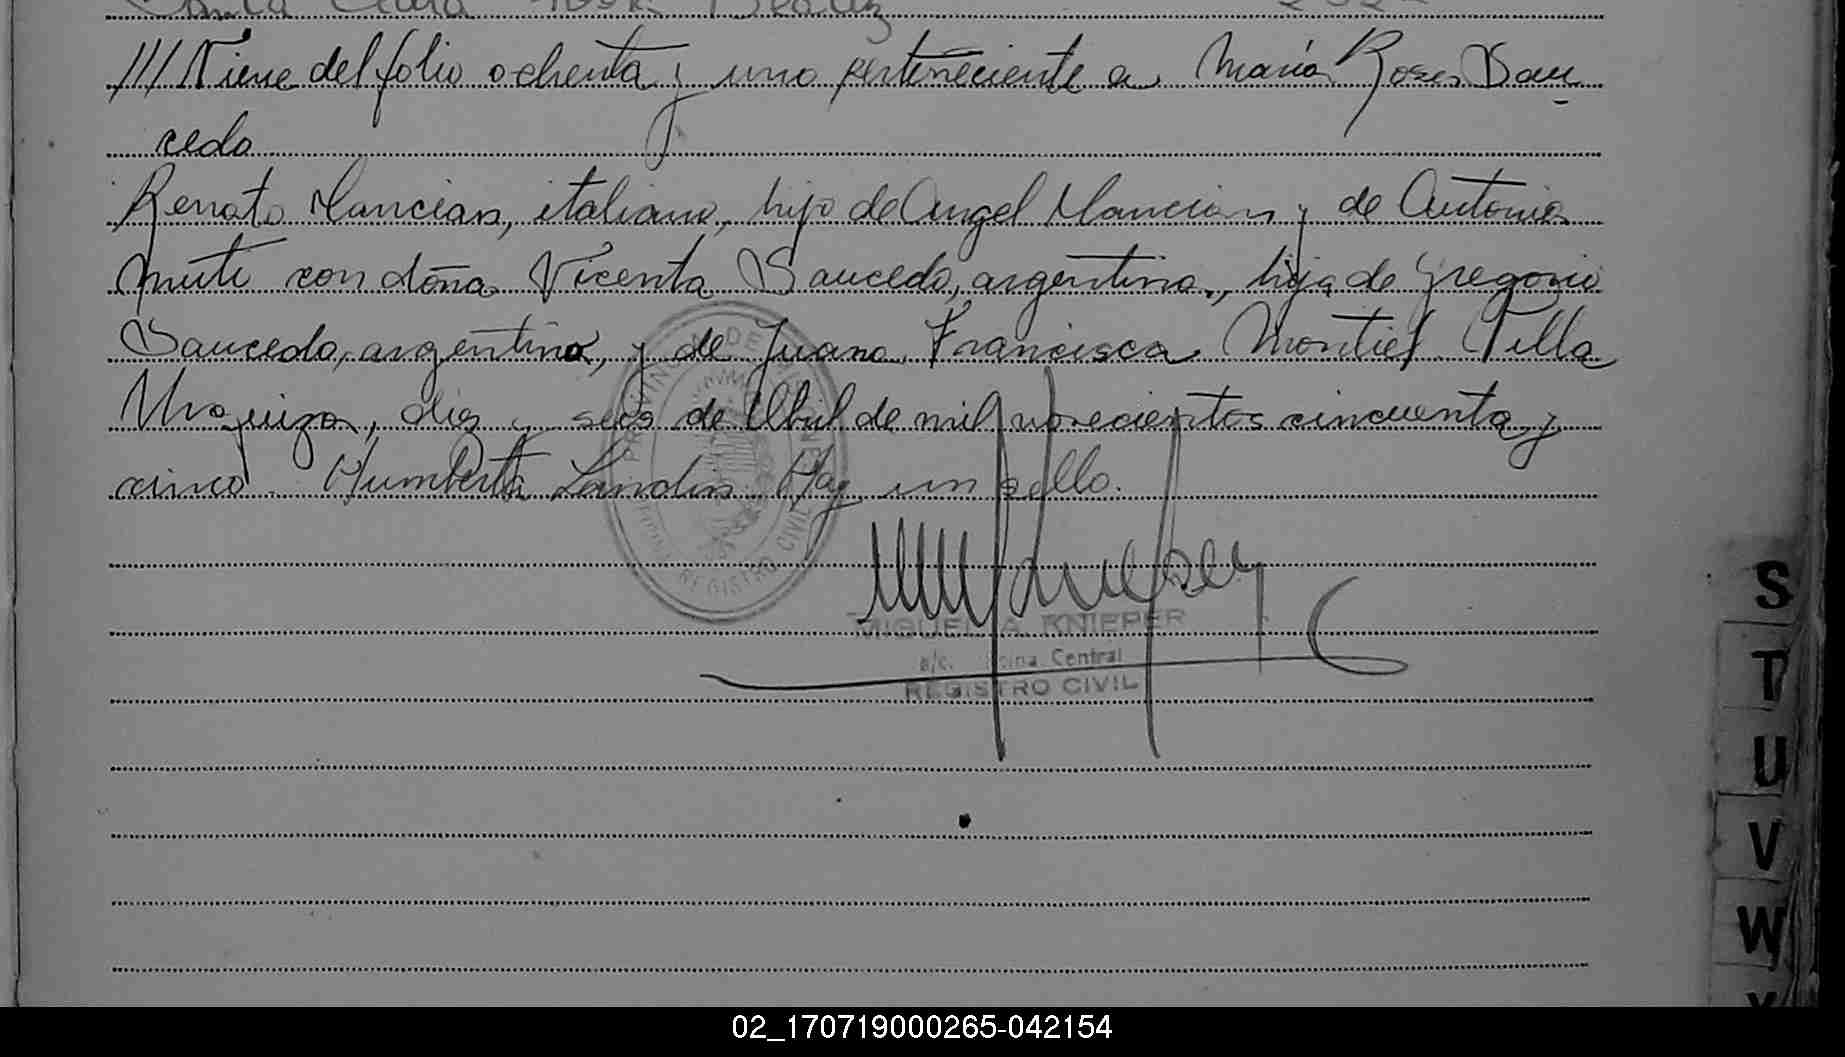 Santa Clara
/// Viene del folio ochenta y uno perteneciente a María Rosa Sau-
cedo
Renato Mancian, italiano, hijo de Angel Mancian y de Antonia
Muti con doña Vicenta Saucedo, argentina, hija de Gregorio
Saucedo, argentino, y de Juana Francisca Montiel Villa
Urquiza, diez y seis de Abril de mil novecientos cincuenta y
cinco. Humberto Landin Hay un sello.
PROVINCIA DE
REGISTRO CIVIL
MIGUEL A. KNIEPER
a/c. Central
REGISTRO CIVIL
S
T
U
V
W
X
02_170719000265-042154